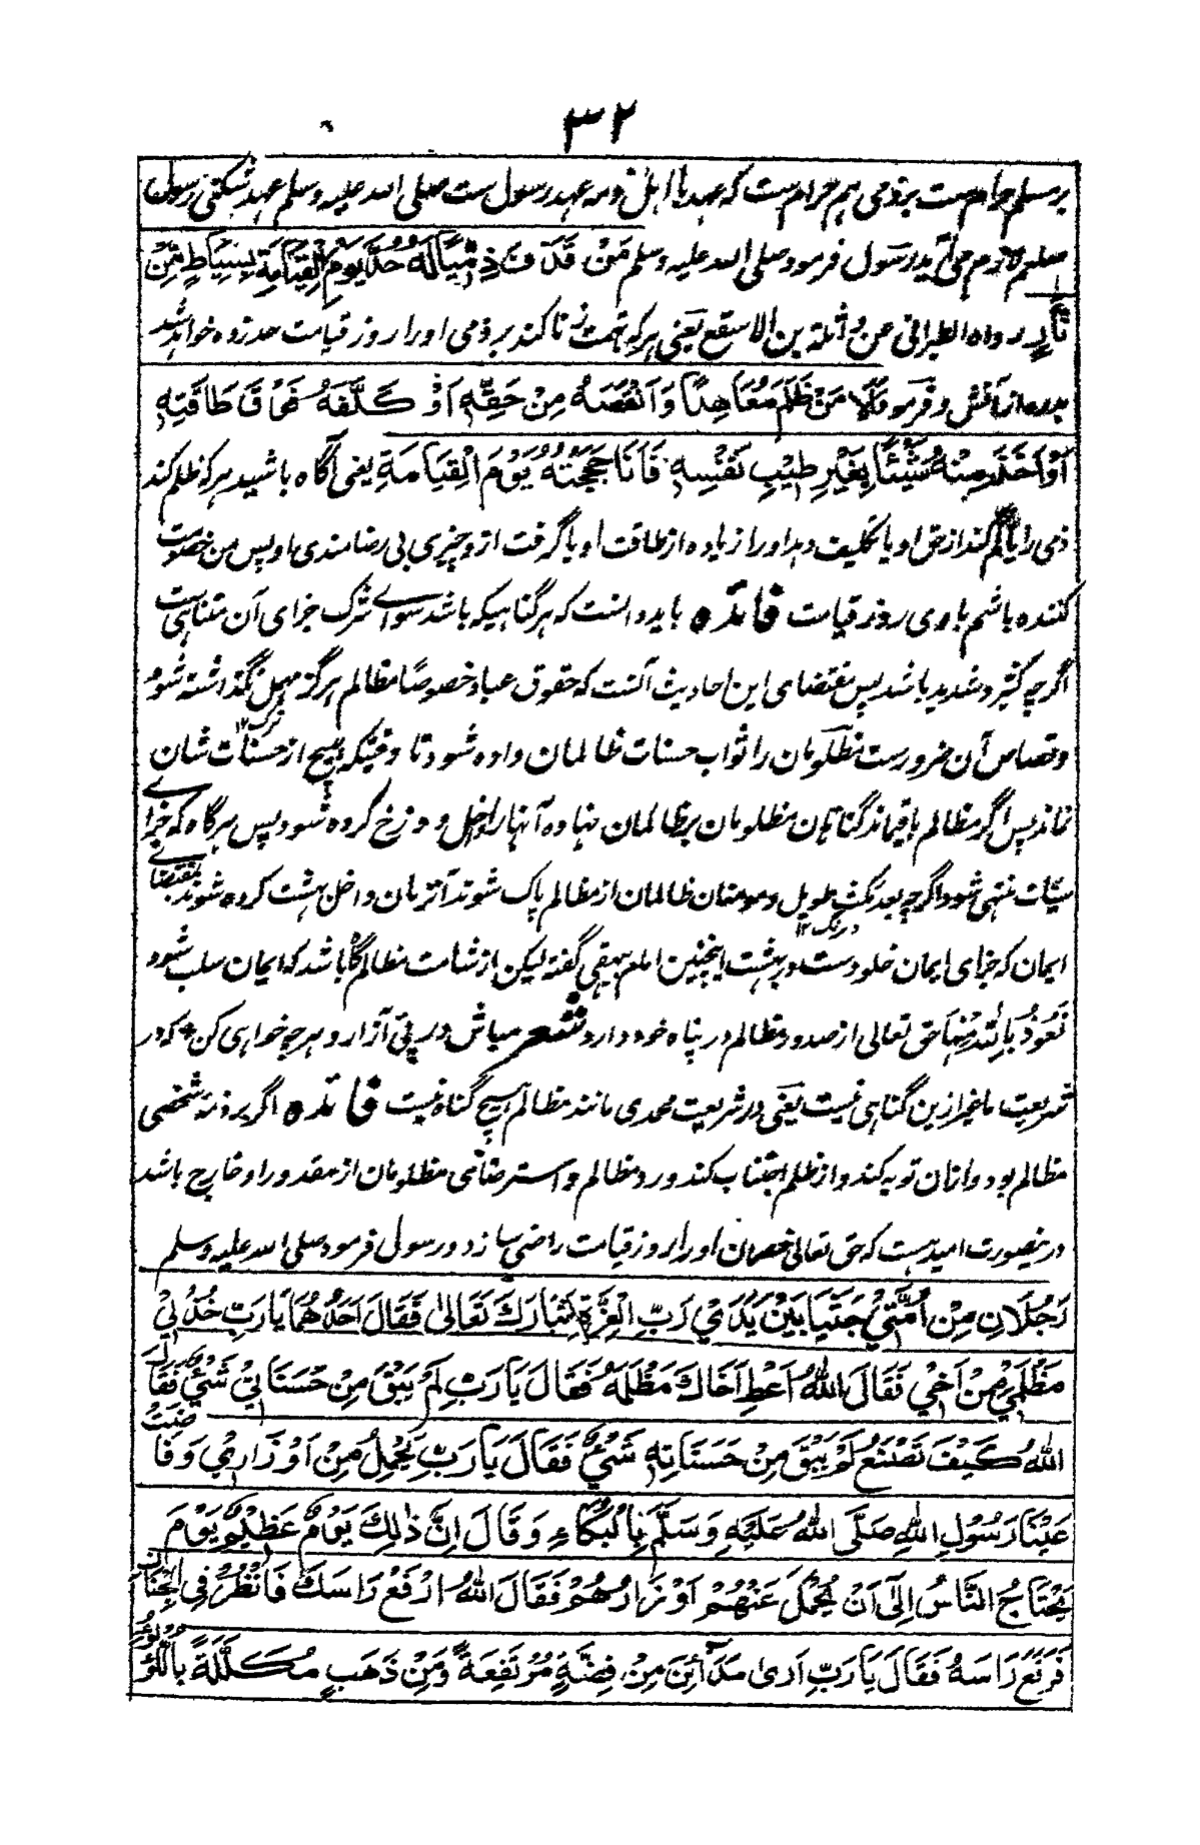 ۳۲
بر مسلم حرام ست بر ذمی هم حرام ست که عهد با اهل ذمه عهد رسول ست صلی الله علیه وسلم عهد شکنی رسول
صلعم لازم می آید رسول فرمود صلی الله علیه وسلم مَنْ قَذَفَ ذِمِّيًّا لَهُ حُدَّ يَوْمَ الْقِيَامَةِ بِسِيَاطٍ مِّنْ
نَّارٍ رواه الطبرانی عن واثلة بن الاسقع یعنی هر که تهمت زنا کند بر ذمی او را روز قیامت حد زده خواهد شد
بدره از آتش و فرمود اَلَا مَنْ ظَلَمَ مُعَاهِدًا وَانْتَقَصَهُ مِنْ حَقِّهٖ اَوْ كَلَّفَهُ فَوْقَ طَاقَتِهٖ
اَوْ اَخَذَ مِنْهُ شَيْئًا بِغَيْرِ طِيْبِ نَفْسِهٖ فَاَنَا حَجِيْجُهُ يَوْمَ الْقِيَامَةِ یعنی آگاه باشید هر که ظلم کند
ذمی را یا کم کند از حق او یا تکلیف دهد او را زیاده از طاقت او یا گرفت ازو چیزی بی رضامندی او پس من خصومت
کننده باشم با وی روز قیامت فائده باید دانست که هر گناهیکه باشد سوای شرک جزای آن متناهی ست
اگرچه کثیر و شدید باشد پس مقتضای این احادیث آنست که حقوق عباد خصوصًا مظالم هرگز مهمل نگذاشته شود
و قصاص آن ضرورست مظلومان را ثواب حسنات ظالمان داده شود تا وقتیکه هیچ از حسنات شان
نماند پس اگر مظالم باقیماند گناهان مظلومان بر ظالمان نهاده آنها را داخل دوزخ کرده شود پس هرگاه که جزای
سیّئات منتهی شود اگرچه بعد مکث طویل و مومنان ظالمان از مظالم پاک شوند آنزمان داخل بهشت کرده شوند بمقتضای
درنگ ۱۲
ایمان که جزای ایمان خلودست در بهشت اینچنین امام بیهقی گفته لیکن از شامت مظالم گاه باشد که ایمان سلب شود
نَعُوذُ بِاللّٰهِ مِنْهَا حق تعالی از صدور مظالم در پناه خود دارد شعر مباش در پی آزار و هرچه خواهی کن + که در
شریعت ما غیر ازین گناهی نیست یعنی در شریعت محمدی مانند مظالم هیچ گناه نیست فائده اگر بر ذمّه شخصی
مظالم بود و ازان توبه کند و از ظلم اجتناب کند و رد مظالم و استرضای مظلومان از مقدور او خارج باشد
درینصورت امیدست که حق تعالی خصمان او را روز قیامت راضی سازد و رسول فرمود صلی الله علیه وسلم
رَجُلَانِ مِنْ اُمَّتِيْ جَثَيَا بَيْنَ يَدَيْ رَبِّ الْعِزَّةِ تَبَارَكَ تَعَالىٰ فَقَالَ اَحَدُهُمَا يَا رَبِّ خُذْ لِيْ
مَظْلَمَتِيْ مِنْ اَخِيْ فَقَالَ اللّٰهُ اَعْطِ اَخَاكَ مَظْلَمَهُ فَقَالَ يَا رَبِّ لَمْ يَبْقَ مِنْ حَسَنَاتِيْ شَيْءٌ فَقَالَ
اللّٰهُ كَيْفَ تَصْنَعُ لَمْ يَبْقَ مِنْ حَسَنَاتِهٖ شَيْءٌ فَقَالَ يَا رَبِّ يَحْمِلُ مِنْ اَوْزَارِيْ وَفَاضَتْ
عَيْنَا رَسُوْلِ اللّٰهِ صَلَّى اللّٰهُ عَلَيْهِ وَسَلَّمَ بِالْبُكَاءِ وَقَالَ اِنَّ ذٰلِكَ يَوْمٌ عَظِيْمٌ يَوْمَ
يَحْتَاجُ النَّاسُ اِلٰى اَنْ يُحْمَلَ عَنْهُمْ اَوْزَارُهُمْ فَقَالَ اللّٰهُ ارْفَعْ رَاسَكَ فَانْظُرْ فِي الْجِنَانِ
فَرَفَعَ رَاسَهُ فَقَالَ يَا رَبِّ اَرىٰ مَدَائِنَ مِنْ فِضَّةٍ مُرْتَفِعَةً وَمِنْ ذَهَبٍ مُكَلَّلَةً بِاللُّؤْلُؤِ